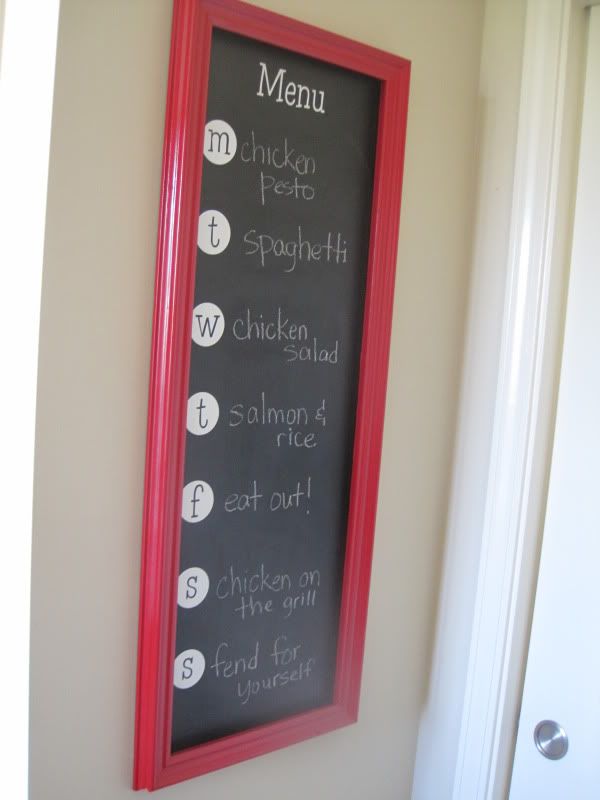 Menu
m chicken
pesto
t spaghetti
w chicken
salad
t salmon &
rice
f eat out!
s chicken on
the grill
s fend for
yourself